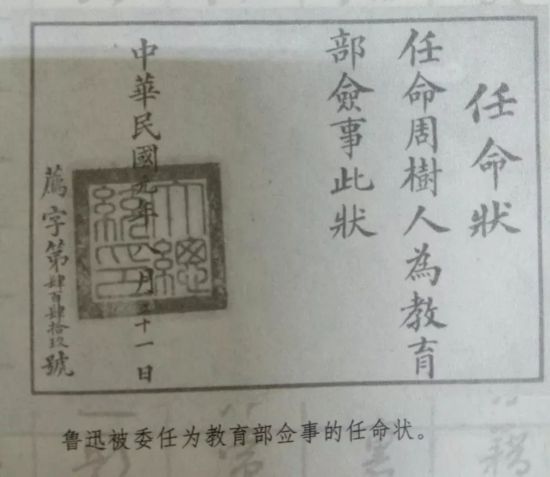 任命狀
任命周樹人為教育
部僉事此狀
中華民國元年八月二十一日
薦字第肆百肆拾玖號
大總統印
鲁迅被委任为教育部佥事的任命状。